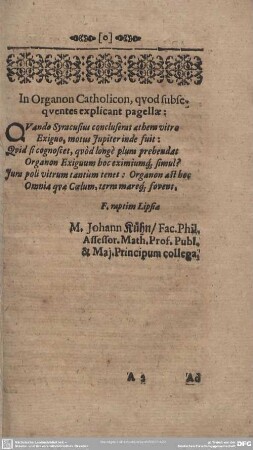 [0]
In Organon Catholicon, qvod subse-
qventes explicant pagellæ:
QVando Syracusius concluserat æthera vitro
Exiguo, motus Jupiter inde fuit:
Qvid si cognoscet, qvòd longè plura prehendat
Organon Exiguum hoc eximiumq́, simul?
Jura poli vitrum tantùm tenet: Organon ast hoc
Omnia qvæ Cœlum, terra mareq́, fovent.
F. raptim Lipsiæ
M. Johann Kühn/ Fac. Phil.
Assessor. Math. Prof. Publ.
& Maj. Principum collega.
A 2
Ad
DFG